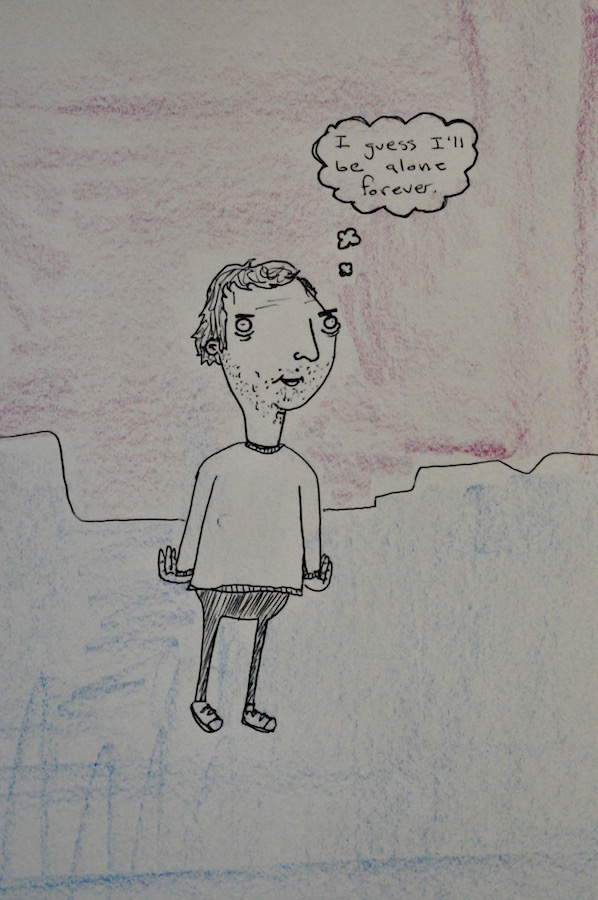 I guess I'll
be alone
forever.